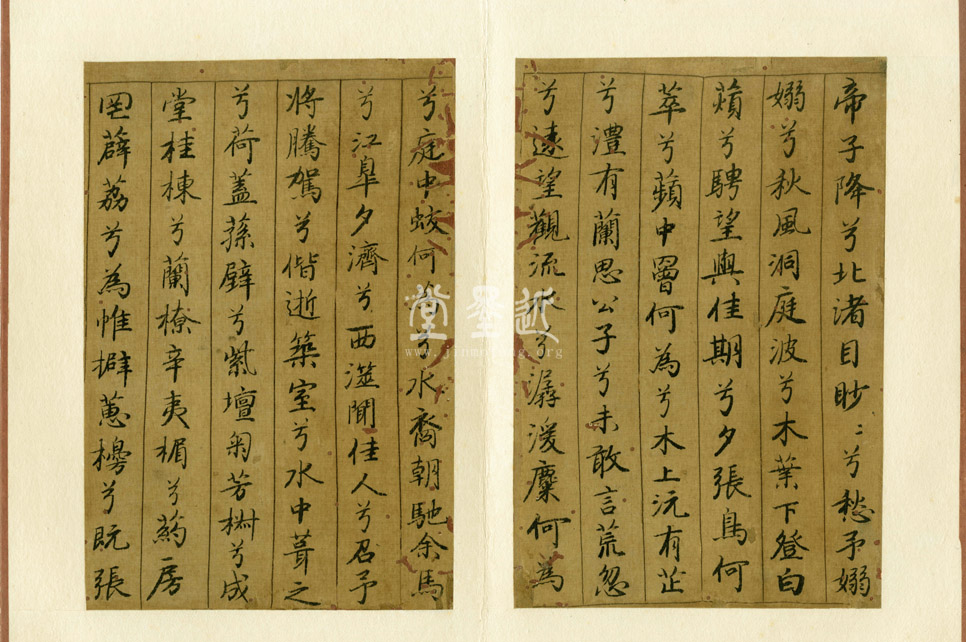 帝子降兮北渚目眇〻兮愁予嫋
嫋兮秋風洞庭波兮木葉下登白
薠兮騁望與佳期兮夕張鳥何
萃兮蘋中罾何為兮木上沅有芷
兮澧有蘭思公子兮未敢言荒忽
兮遠望觀流水兮潺湲麋何為
兮庭中蛟何為兮水裔朝馳余馬
兮江皐夕濟兮西澨聞佳人兮召予
將騰駕兮偕逝築室兮水中葺之
兮荷蓋蓀壁兮紫壇匊芳椒兮成
堂桂棟兮蘭橑辛夷楣兮葯房
罔薜荔兮為帷擗蕙櫋兮既張
近墨堂
www.jinmotang.org